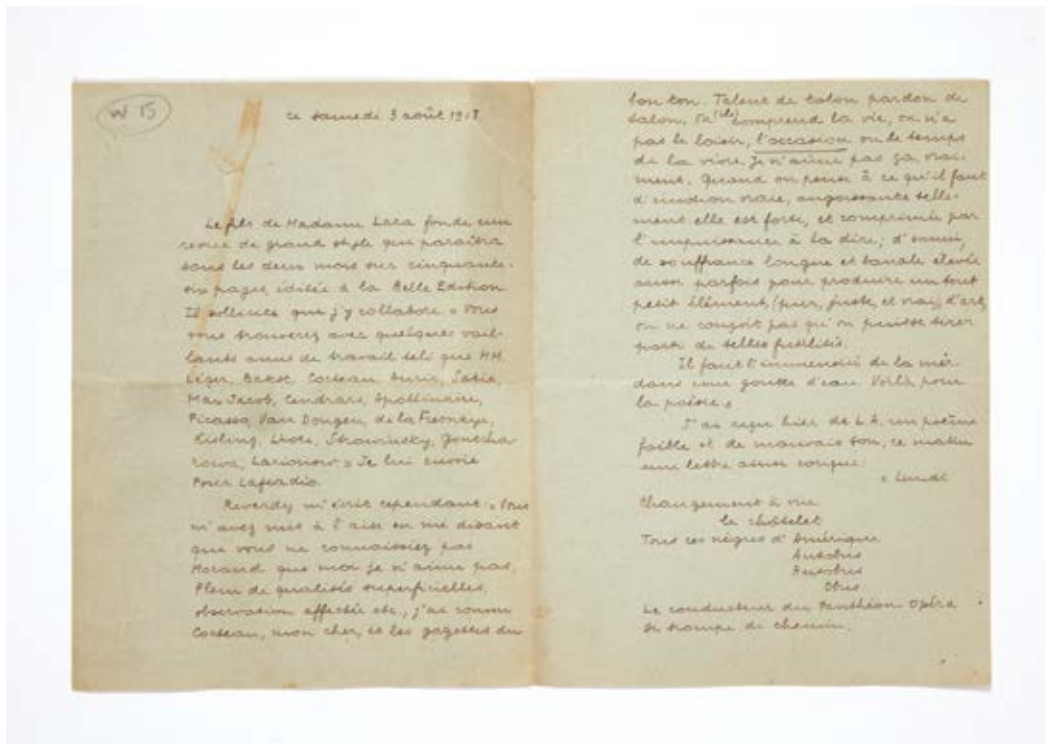 W 15
ce samedi 3 août 1918
Le fils de Madame Lara fonde une
revue de grand style qui paraîtra
tous les deux mois sur cinquante-
six pages, éditée à la Belle Edition
Il sollicite que j'y collabore « Vous
vous trouverez avec quelques vail-
lants amis de travail tels que MM.
Léger, Bakst, Cocteau, Auric, Satie,
Max Jacob, Cendrars, Apollinaire,
Picasso, Van Dongen, de la Fresnaye,
Kisling, Lhote, Strawinsky, Gontcha-
rowa, Larionow » Je lui envoie
Pour Lafcadio.
Reverdy m'écrit cependant : « Vous
m'avez mis à l'aise en me disant
que vous ne connaissiez pas
Morand que moi je n'aime pas.
Plein de qualités superficielles,
observation affectée etc., j'ai connu
Cocteau, mon cher, et les gazettes du
bon ton. Talent de talon pardon de
salon, comprend la vie, on n'a
pas le loisir, l'occasion ou le temps
de la vivre. Je n'aime pas ça, vrai-
ment. Quand on pense à ce qu'il faut
d'émotion vraie, angoissante telle-
ment elle est forte, et comprimée par
l'impuissance à la dire ; d'ennui,
de souffrance longue et banale élevée
aussi parfois pour produire un tout
petit élément, (pur, juste, et vrai) d'art,
on ne conçoit pas qu'on puisse tirer
parti de telles futilités.
Il faut l'immensité de la mer
dans une goutte d'eau. Voilà pour
la poésie. »
J'ai reçu hier de L.A. un poème
faible et de mauvais ton, ce matin
une lettre ainsi conçue :
Changement à vue
le châtelet
Tous ces nègres d'Amérique
Autobus
Autobus
Obus
Le conducteur du Panthéon Opéra
se trompe de chemin.